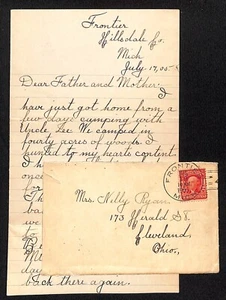 Frontier
Hillsdale Co.
Mich
July 17, 05
Dear Father and Mother:
I
have just got home from a
few days camping with
Uncle Lee We camped in
fourty acres of woods I
hunted to my hearts content
I h
once
for
Th
ba
we
to
B
M
day
back there again.
FRONTI
MICH
Mrs. Nelly Ryan,
173 Herald St.
Cleveland,
Ohio,